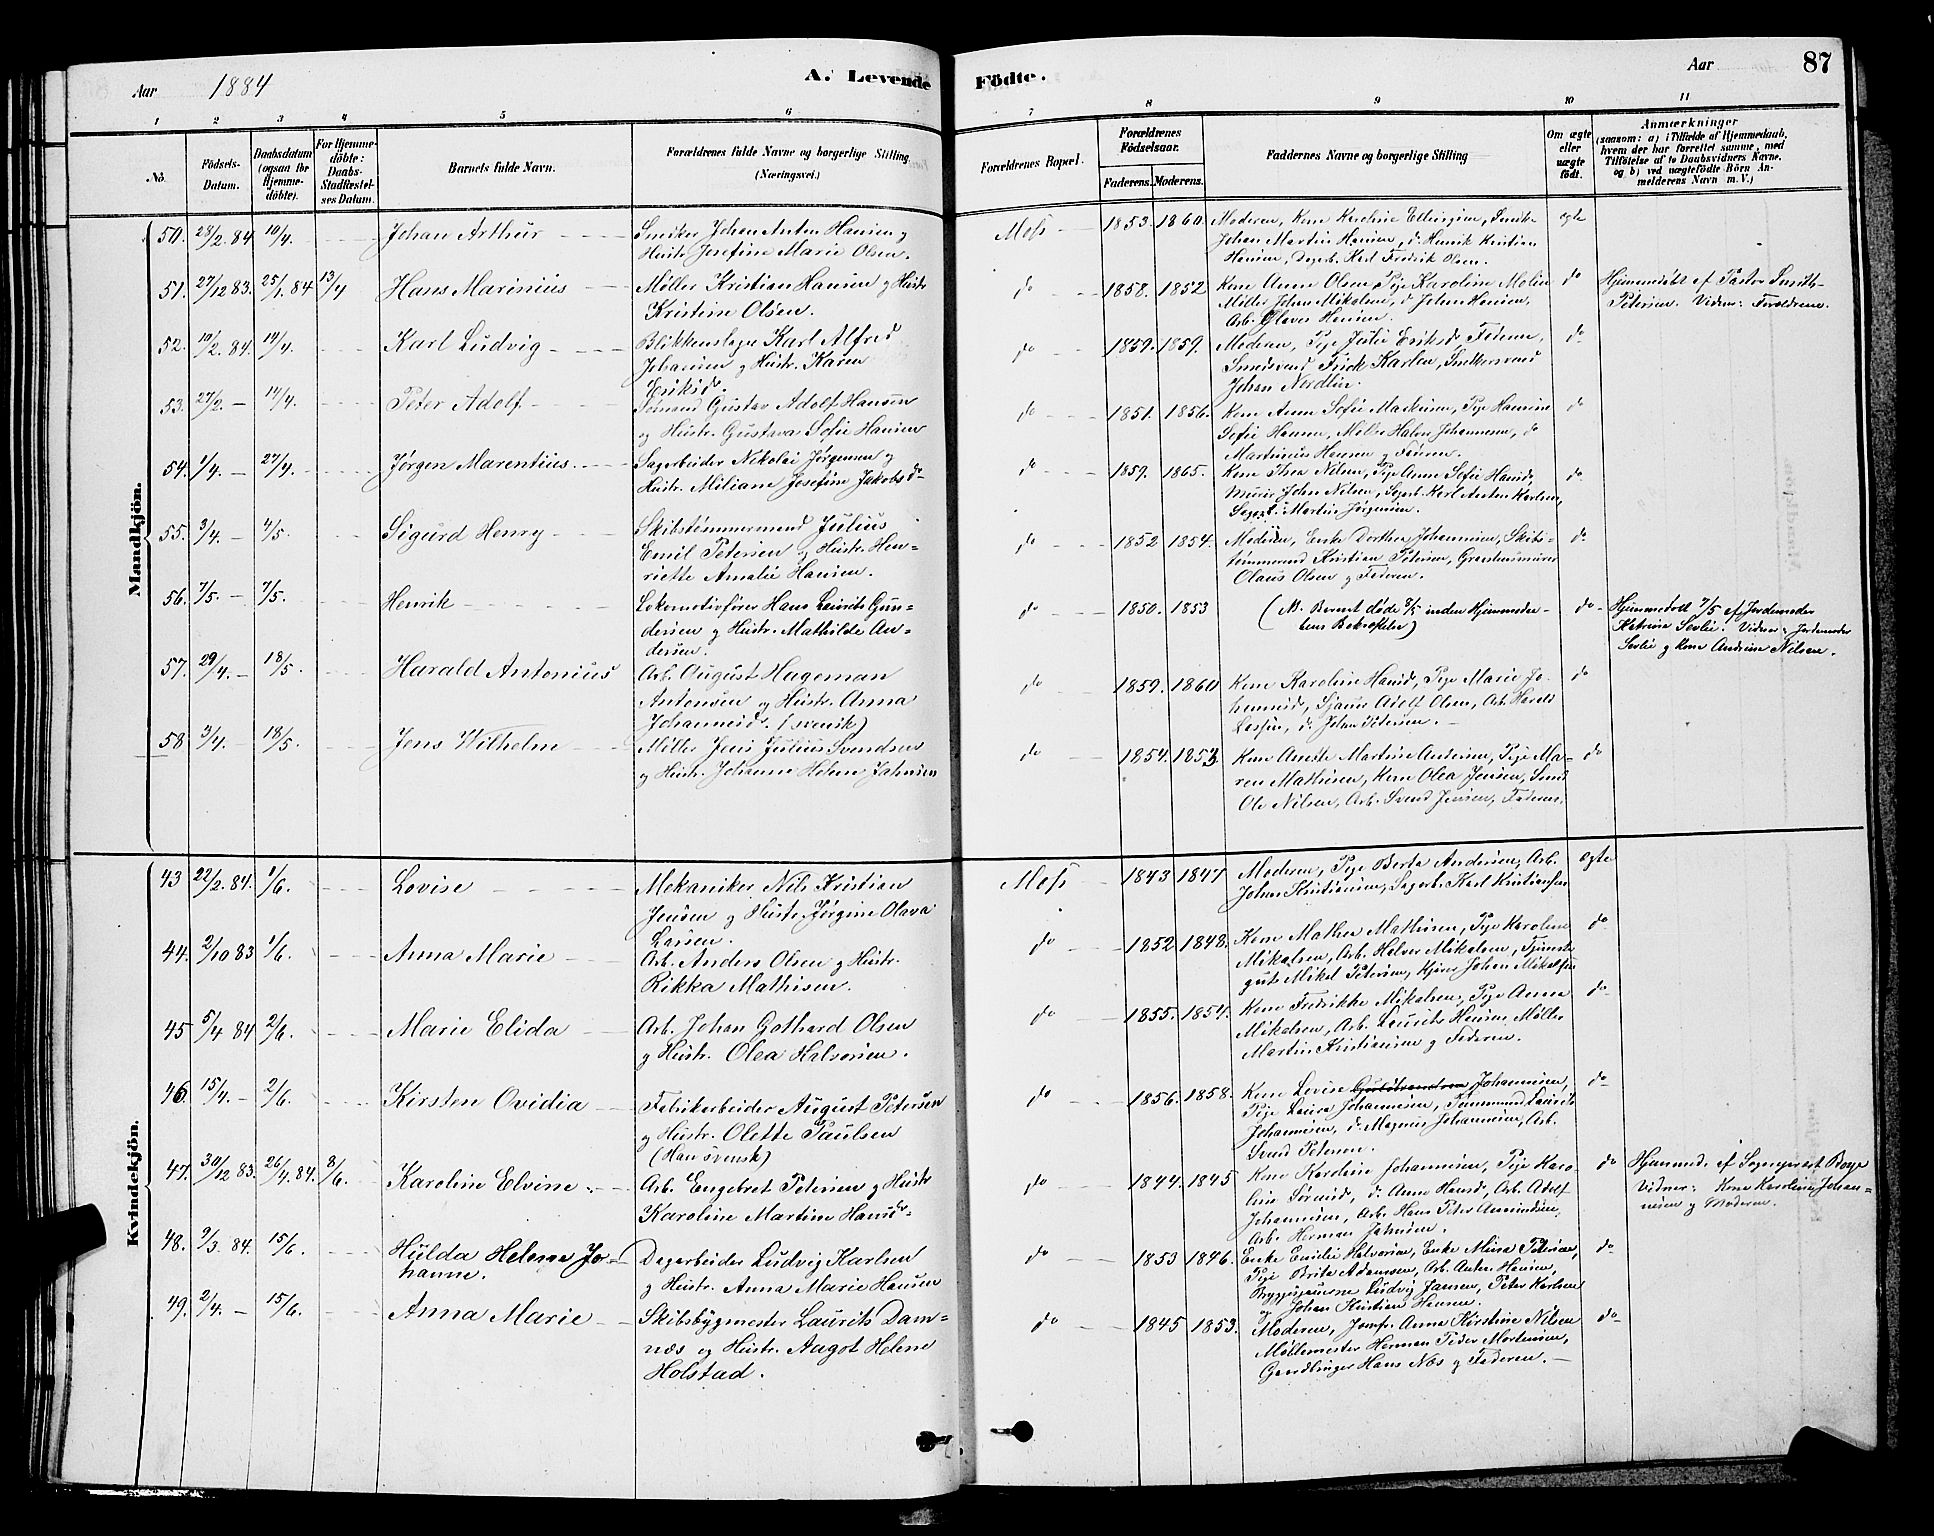 Aar 1884 A. Levende Födte. Aar 87
1 2 3 4 5 6 7 8 9 10 11
No.
Födsels-
Datum.
Daabsdatum
(ogsaa for
Hjemme-
döbte).
For Hjemme-
döbte:
Daabs-
Stadfæstel-
ses Datum.
Barnets fulde Navn.
Forældrenes fulde Navne og borgerlige Stilling
(Næringsvei.)
Forældrenes Bopæl.
Forældrenes
Födselsaar.
Faderens. Moderens.
Faddernes Navne og borgerlige Stilling
Om ægte
eller
uægte
födt.
Anmærkninger
(saasom: a) i Tilfælde af Hjemmedaab,
hvem der har forrettet samme, med
Tilföielse af to Daabsvidners Navne.
og b) ved uægtefödte Börn An-
melderens Navn m. V.)
Mandkjön.
50. 28/2. 84 10/4. Johan Arthur
Snekker Johan Anton Hansen og
Hustr. Josefine Marie Olsen.
Moss 1853. 1860.
Moderen, Kone Karoline Ellingsen, Snekker
Johan Martin Hansen, do Henrik Kristian
Hansen, Dagarb. Karl Fredrik Olsen.
ægte
51. 27/12 83. 25/1. 84 13/4 Hans Marinius
Møller Kristian Hansen og Hustr.
Kristine Olsen.
do 1858. 1852
Kone Anne Olsen, Pige Karoline Molin
Møller Johan Mikalsen, do Johan Hansen,
Arb. Olaves Hansen.
do
Hjemmedøbt af Pastor Smith-
Petersen. Vidner: Forældrene.
52. 10/2. 84. 14/4. Karl Ludvig
Blikkenslager Karl Alfred
Johansen og Hustr. Karen
Eriksd.
do 1859. 1859.
Moderen, Pige Julie Eriksd., Faderen,
Smedsvend Frick Karlsen, Snekkersvend
Johan Nordlin.
do
53. 27/2. 14/4. Peter Adolf.
Sømand Gustav Adolf Hansen
og Hustr. Gustava Sofie Hansen
do 1851. 1856.
Kone Anne Sofie Markusen, Pige Hansine
Sofie Hansen, Møller Halvor Johannesen, do
Martinius Hansen og Faderen.
do
54. 1/4. 27/4. Jørgen Marentius.
Sagarbeider Nikolai Jørgensen og
Hustr. Miliane Josefine Jakobsd.
do 1859. 1865.
Kone Thea Nilsen, Pige Anne Sofie Hansd.
Murer John Nilsen, Sagarb. Karl Anton Karlsen,
Martin Jørgensen.
do
55. 3/4. 4/5. Sigurd Henry
Skibstømmermand Julius
Emil Petersen og Hustr. Hen-
riette Amalie Hansen.
do 1852 1854.
Moderen, Enke Dorthea Johannesen, Skibs-
tømmermand Kristian Petersen,
Olaus Olsen og Faderen.
do
56. 7/5. 7/5. Henrik
Lokomotivfører Hans Lauritz Gun-
dersen og Hustr. Mathilde An-
dersen.
do 1850. 1853
(NB. Barnet døde 8/5 inden Hjemmedaa-
bens Bekræftelse)
do
Hjemmedøbt 7/5 af Jordemoder
Katrine Sørlie. Vidner: Jordemoder
Sørlie og Kone Andrine Nilsen.
57. 29/4. 18/5. Harald Antonius
Arb. August Hageman
Antonsen og Hustr. Anna
Johannesd. (svensk)
do 1859. 1860
Kone Karoline Hansd., Pige Marie Jo-
hannesd., Adolf Olsen, Arb. Harald
do Johan Petersen.
do
58 3/4. 18/5. Jens Wilhelm
Møller Jens Julius Svendsen
og Hustr. Johanne Helene Jahnsen
do 1854. 1853
Kone Anette Martine Andersen, Pige Ma-
ren Mathisen, Kone Olea Jensen, Smed
Ole Nilsen, Arb. Svend Jensen, Faderen.
do
Kvindekjön.
43 22/2. 84. 1/6. Lovise
Mekaniker Nils Kristian
Jensen og Hustr. Jørgine Olava
Larsen.
Moss 1843 1847
Moderen, Pige Berte Andersen, Arb.
Johan Kristiansen, Sagarb. Karl Kristiansen
ægte
44. 2/10 83 1/6. Anna Marie
Arb. Anders Olsen og Hustr.
Rikka Mathisen.
do 1852 1848.
Kone Mathea Mathisen, Pige Karoline
Mikalsen, Arb. Halvor Mikalsen, Tjeneste-
gut Mikal Petersen, Johan Mikalsen
do
45 5/4 84 2/6. Marie Elida
Arb. Johan Gothard Olsen
og Hustr. Olea Halvorsen.
do 1855. 1854.
Kone Fredrikke Mikalsen, Pige Anna
Mikalsen, Arb. Laurits Hansen, Møller
Martin Kristiansen og Faderen.
do
46. 15/4. 2/6. Kirsten Ovidia
Fabrikarbeider August Petersen
og Hustr. Olette Paulsen
(Han svensk)
do 1856. 1858.
Kone Lovise Johannesen,
Pige Laura Johannesen, Tømmermand Laurits
Johannesen, do Magnus Johannesen, Arb.
Svend Petersen.
do
47. 30/12 83. 26/4. 84. 8/6. Karoline Elvine
Arb. Engebret Petersen og Hustr.
Karoline Martine Hansd.
do 1844. 1845
Kone Karoline Johannesen, Pige Karo-
line Sørensd., do Anne Hansd., Arb. Adolf
Johannesen, Arb. Hans Peter Amundsen,
Arb. Herman Jahnsen.
do
Hjemmed. af Sogneprest Borge
Vidner: Kone Karoline Johan-
nesen og Moderen.
48. 9/3. 84. 15/6. Hulda Helene Jo-
hanne.
Dagarbeider Ludvig Karlsen
og Hustr. Anna Marie Hansen
do 1853 1846.
Enke Emilie Halvorsen, Enke Mina Petersen,
Pige Brita Adamsen, Arb. Anton Hansen,
Ludvig Jansen, Peter Karlsen
og Johan Kristian Hansen.
do
49. 2/4. 15/6. Anna Marie
Skibsbygmester Laurits Dam-
næs og Hustr. Aagot Helene
Holstad.
do 1845 1853.
Moderen, Jomfr. Anna Kirstine Nilsen
Møllemester Herman Peder Mortensen,
Gaardbruger Hans Næs og Faderen.
do